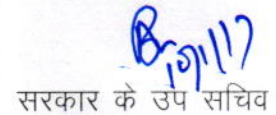 10/1/17
सरकार के उप सचिव